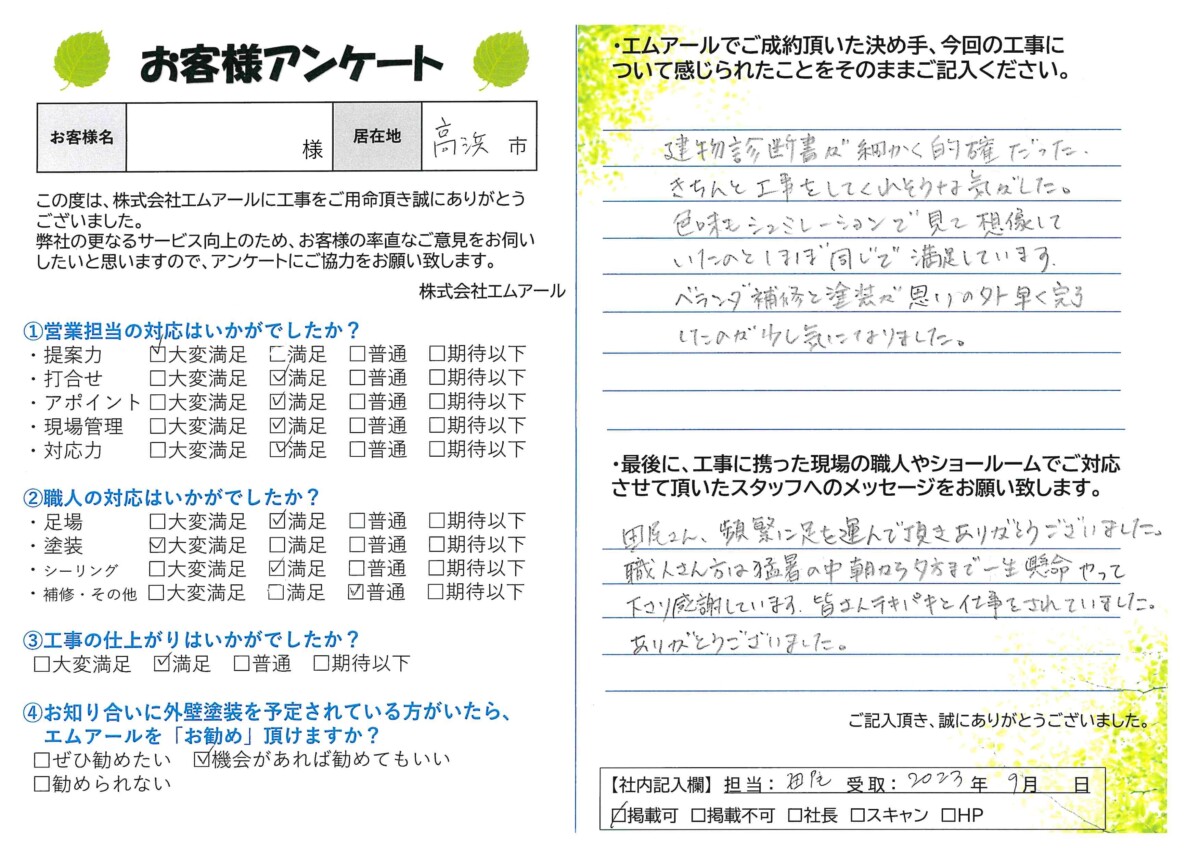 お客様アンケート
お客様名 様 居在地 高浜 市
この度は、株式会社エムアールに工事をご用命頂き誠にありがとう
ございました。
弊社の更なるサービス向上のため、お客様の率直なご意見をお伺い
したいと思いますので、アンケートにご協力をお願い致します。
株式会社エムアール
①営業担当の対応はいかがでしたか？
・提案力 ☑大変満足 □満足 □普通 □期待以下
・打合せ □大変満足 ☑満足 □普通 □期待以下
・アポイント □大変満足 ☑満足 □普通 □期待以下
・現場管理 □大変満足 ☑満足 □普通 □期待以下
・対応力 □大変満足 ☑満足 □普通 □期待以下
②職人の対応はいかがでしたか？
・足場 □大変満足 ☑満足 □普通 □期待以下
・塗装 ☑大変満足 □満足 □普通 □期待以下
・シーリング □大変満足 ☑満足 □普通 □期待以下
・補修・その他 □大変満足 □満足 ☑普通 □期待以下
③工事の仕上がりはいかがでしたか？
□大変満足 ☑満足 □普通 □期待以下
④お知り合いに外壁塗装を予定されている方がいたら、
エムアールを「お勧め」頂けますか？
□ぜひ勧めたい ☑機会があれば勧めてもいい
□勧められない
・エムアールでご成約頂いた決め手、今回の工事に
ついて感じられたことをそのままご記入ください。
建物診断書が細かく的確だった.
きちんと工事をしてくれそうな気がした。
色味もシュミレーションで見て想像して
いたのとほぼ同じで満足しています.
ベランダ補修と塗装が思いの外早く完了
したのが少し気になりました。
・最後に、工事に携った現場の職人やショールームでご対応
させて頂いたスタッフへのメッセージをお願い致します。
さん、頻繁に足を運んで頂きありがとうございました。
職人さん方は猛暑の中朝から夕方まで一生懸命やって
下さり感謝しています. 皆さんテキパキと仕事をされていました。
ありがとうございました。
ご記入頂き、誠にありがとうございました。
【社内記入欄】担当： 受取：2023年 9月 日
☑掲載可 □掲載不可 □社長 □スキャン □HP